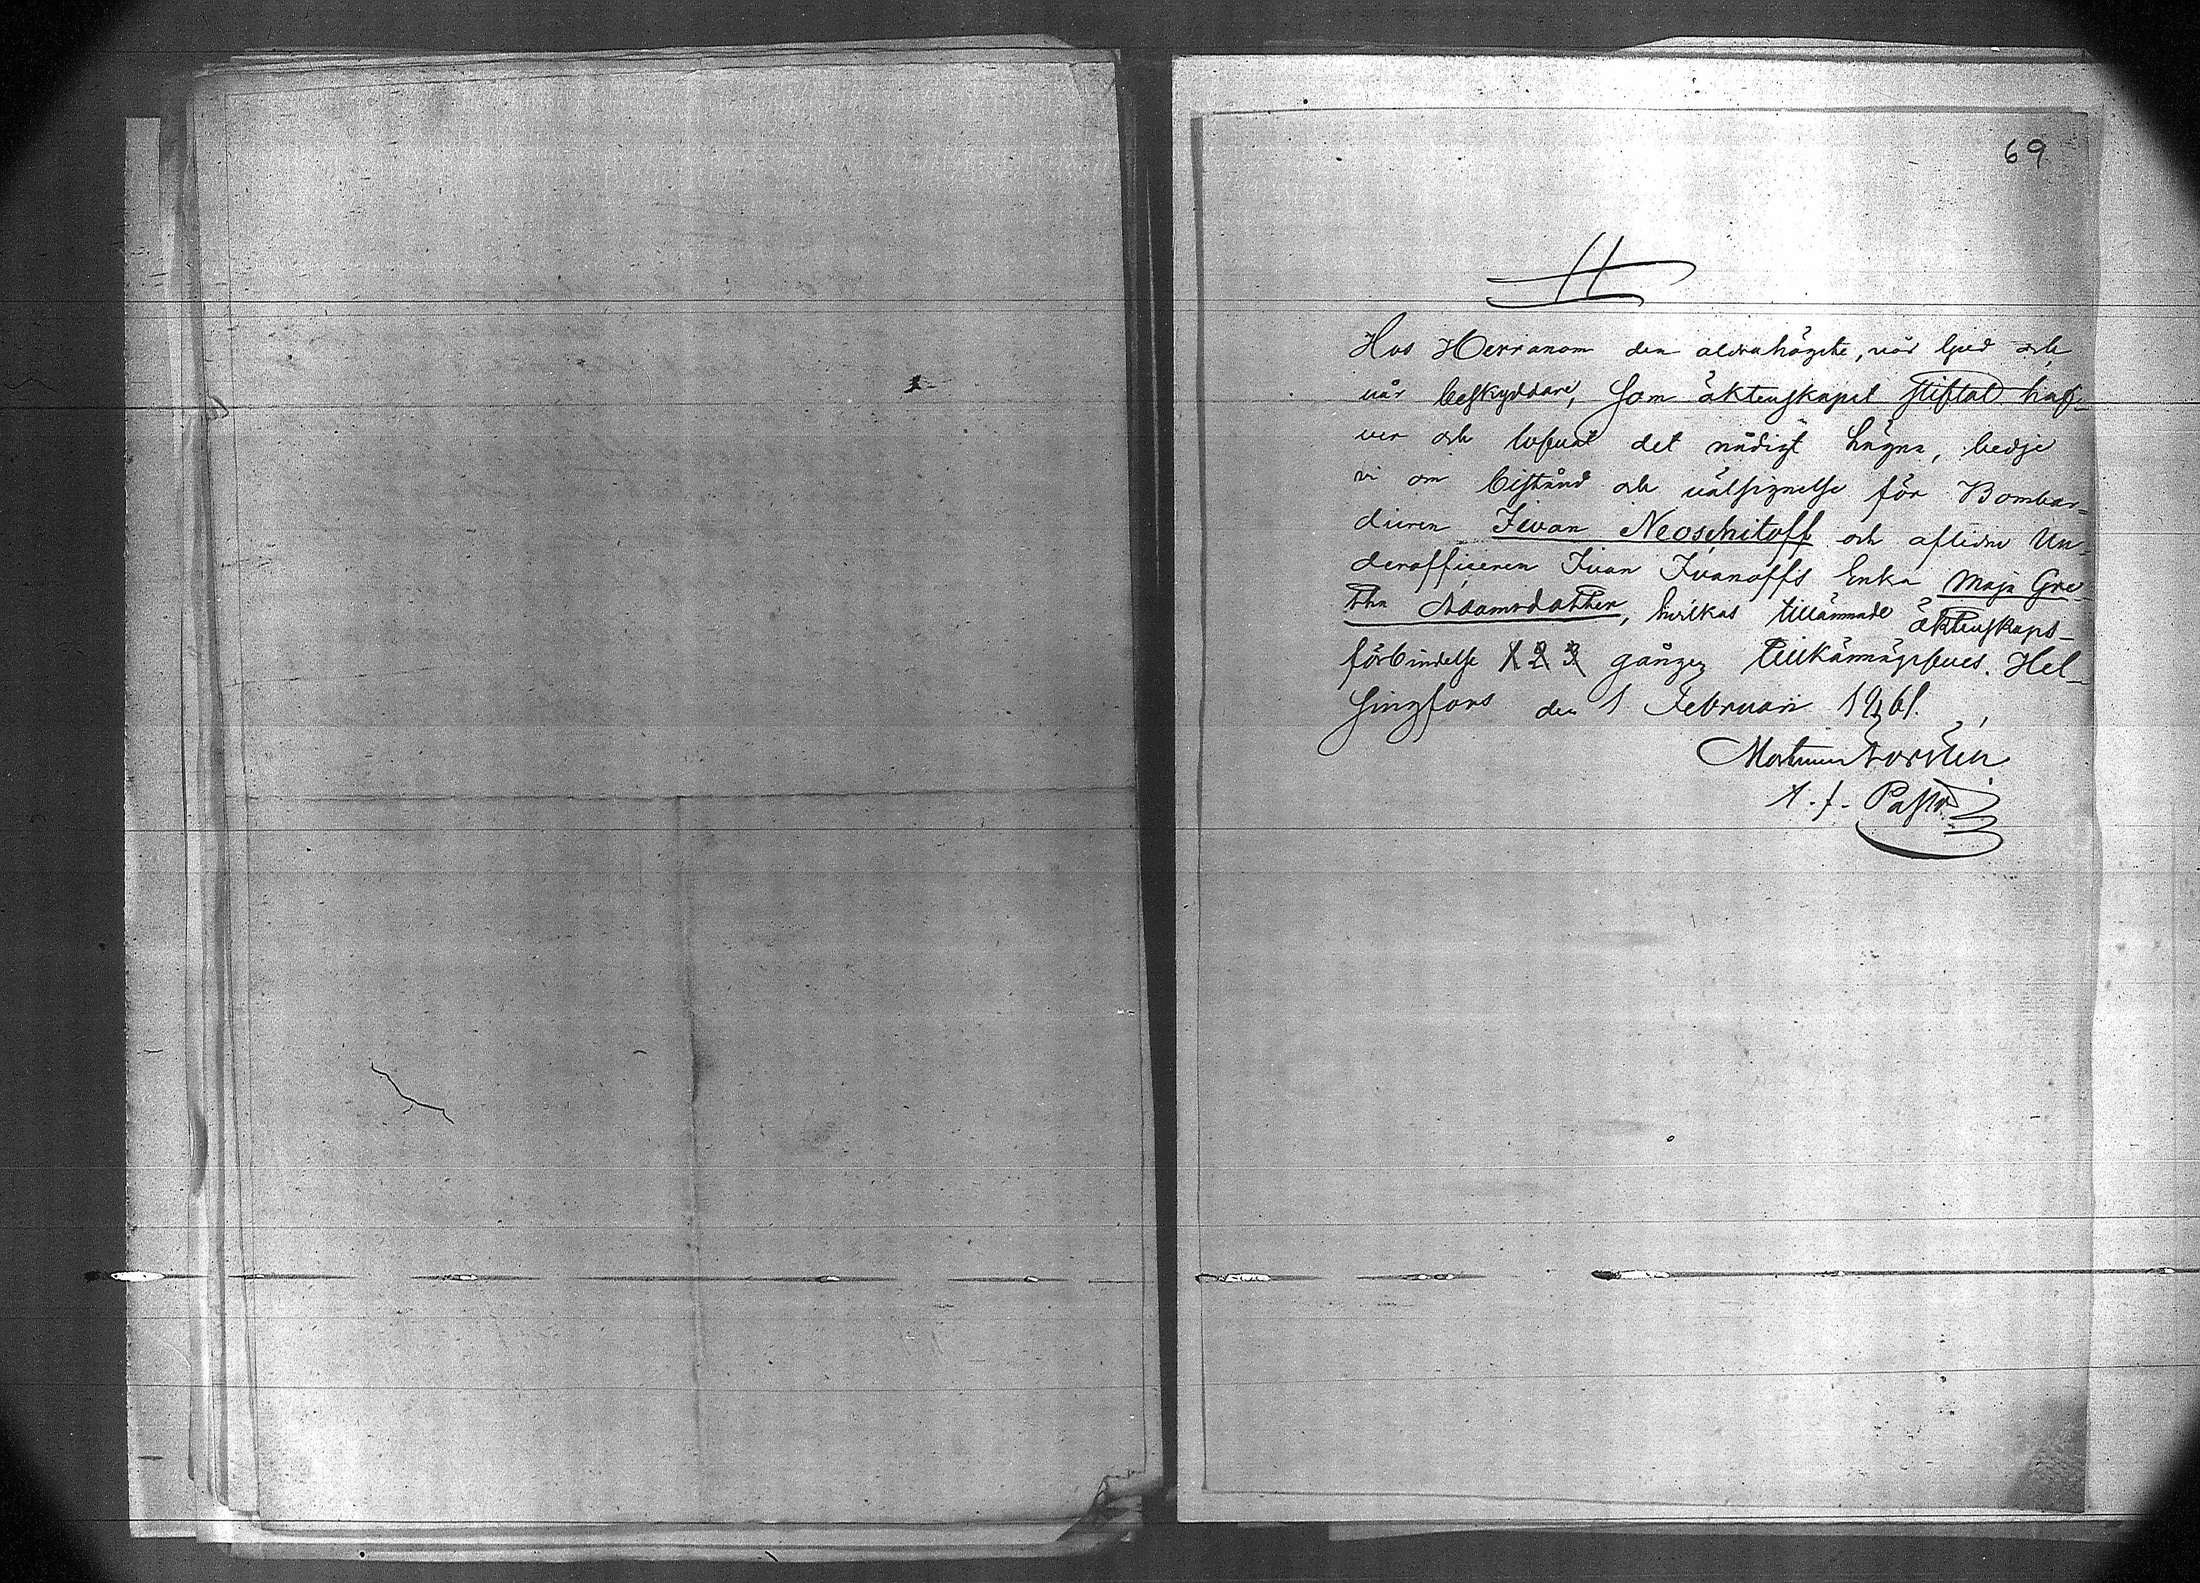 69
Hos Herranom den aldrahögste, vår ljud och
vår beskyddare, som äktenskapet stiftat haf-
ver och lofvat det nådigt hägna, bedje
vi om bistånd och välsignelse för Bombar-
dieren Iwan Neoschitoff och aflidne Un-
derofficeren Ivan Ivanoffs Enka Maja Gre-
tha Adamsdotter, hvilkas tillämnade äktenskaps-
förbindelse 1 2 3 gången tillkännagifves. Hel-
singfors den 1 Februari 1861.
A. f. Pastor